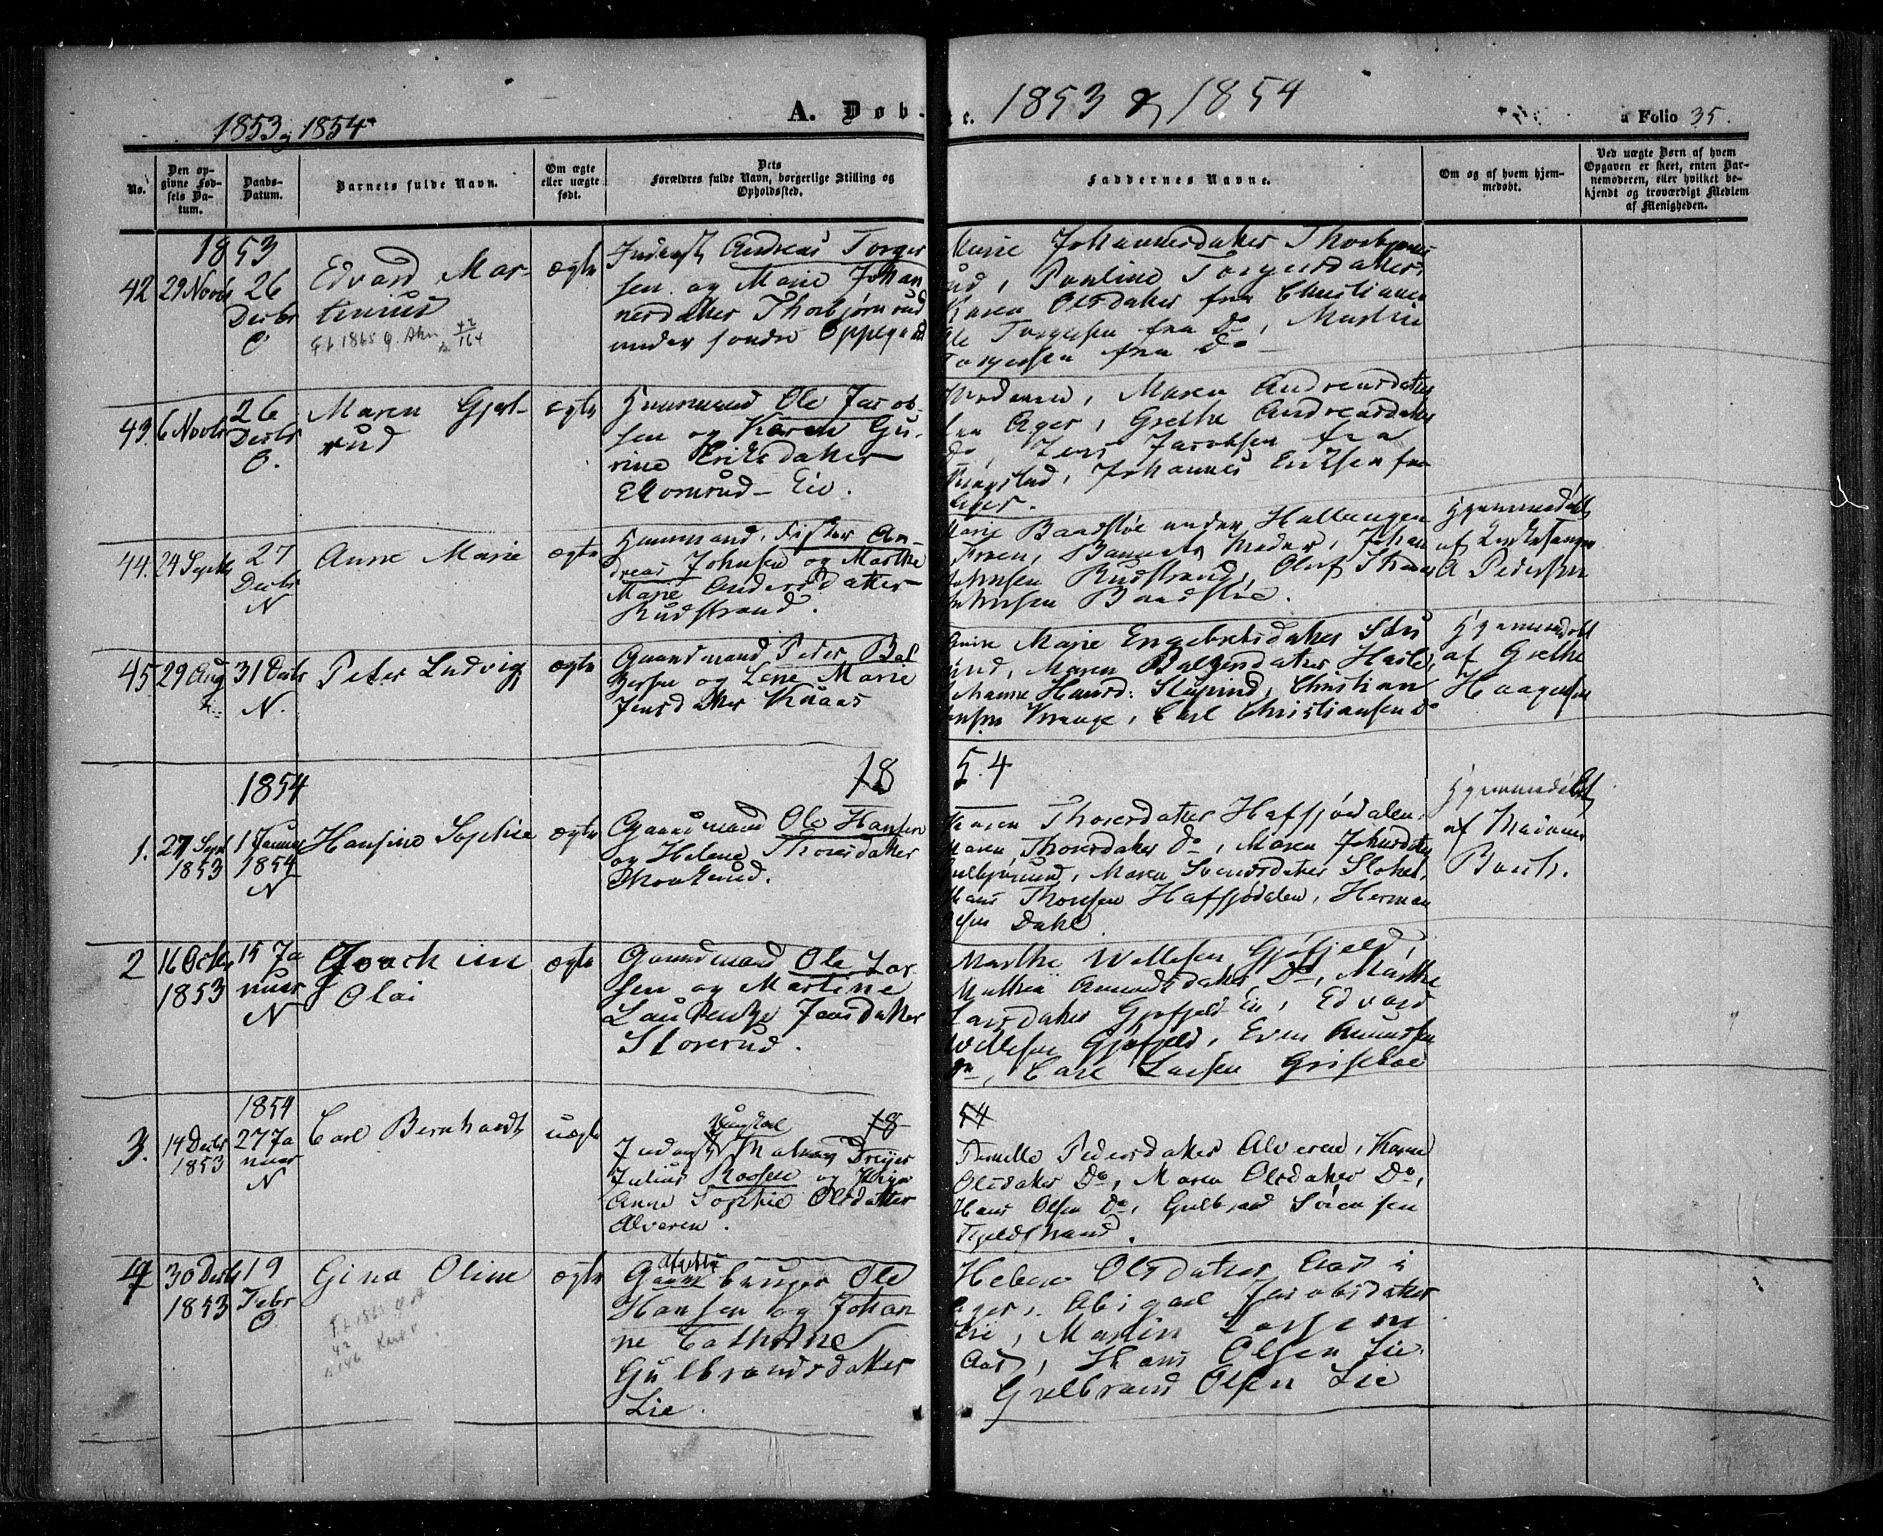 1853 & 1854
A. Døb-
te. 1853 & 1854
a Folio 35.
No.
Den op-
givne Fød-
sels Da-
tum.
Daabs-
Datum.
Barnets fulde Navn.
Om ægte
eller uægte
født.
Dets
Forældres fulde Navn, borgerlige Stilling og
Opholdssted.
Faddernes Navne.
Om og af hvem hjem-
medøbt.
Ved uægte Børn af hvem
Opgaven er skeet, enten Bar-
nemoderen, eller hvilket be-
kjendt og troværdigt Medlem
af Menigheden.
1853
42 29 Novbr 26
Decbr
O
Edvard Mar-
tinius
ægte
Inderst Andreas Torger
sen og Marie Johan
nesdatter Thorbjørnrud
under søndre Oppegaard
Marie Johannesdatter Thorbjørns
rud, Pauline Torgersdatter
Karen Olsdatter fra Christiania
Ole Torgersen fra do, Martin
Torgersen fra do
43. 6 Novbr 26
Decbr
O.
Maren Gjel-
rud
ægte
Huusmand Ole Jacob-
sen og Karen Gu-
rine Eriksdatter
Eie.
Maren Andreasdatter
fra Ager, Grethe Andreasdatter
do, Jens Jacobsen fra
Ringstad, Johannes Eriksen fra
Ager.
44. 24 Septbr 27
Decbr
N
Anne Marie
ægte
Huusmand, Fisker An-
dreas Johnsen og Marthe
Marie Andersdatter
Rudstrand.
Marie Baadstøe under Hallangen
Froen, Barnets Moder, Johan
Johnsen Rudstrand, Oluf Thomas
Baadstøe.
Hjemmedøbt
af Kirkesanger
A Pedersen
45 29 Aug 31 Decbr
N.
Peter Ludvig
ægte
Gaardmand Peder Bol
gersen og Lene Marie
Jensdatter Knaas
Anne Marie Engebretsdatter Stu
bind, Maren Bolgersdatter
Hansd: Stubind, Christian
Jensen Krange, Carl Christiansen do
Hjemmedøbt
af Grethe
Haagensen
1854
18
54
1. 27 Sept
1853
1 Januar
1854
N
Hansine Sophie
ægte
Gaardmand Ole Hansen
og Helene Thoresdatter
Skoklerud.
Karen Thoresdatter Hafsjødalen,
Maren Thoresdatter do, Maren Johnsdatter
Maren Svendsdatter Slottet,
Hans Thoresen Hafsjødalen, Herman
Olsen Dahl
Hjemmedøbt
af Madame
Bauts.
2 16 Octbr
1853
15 Ja
nuar
N
Joachim
Olai
ægte
Gaardmand Ole Lar
sen og Martine
Laurentze Jensdatter
Storerud.
Marthe Willesen Gjøfjeld,
Mathia Amundsdatter Do, Marthe
Larsdatter Gjøfjeld Eie, Edvard
Willesen Gjøfjeld, Even Amundsen
Do, Carl Larsen Griseboe
1854
3. 14 Decbr
1853
27 Ja
nuar
N
Carl Bernhardt
uægte
Ungkarl
18
54
Inderst Thomas Dreyer
Julius Roosen og Pigen
Anne Sophie Olsdatter
Alveren.
Pernille Pedersdatter Alveren, Karen
Olsdatter Do, Maren Olsdatter Do,
Hans Olsen Do, Gulbrand Sørensen
Fjeldstrand.
4 30 Decbr
1853
19
Febr
O
Gina Oline
ægte
Gaardbruger Ole
Hansen og Johan
ne Cathrine
Gulbrandsdatter
Lie.
Helene Olsdatter Aas i
Ager, Abigael Jacobsdatter
Lie, Martin Larsen
Aas, Hans Olsen Lie
Gulbrand Olsen Lie